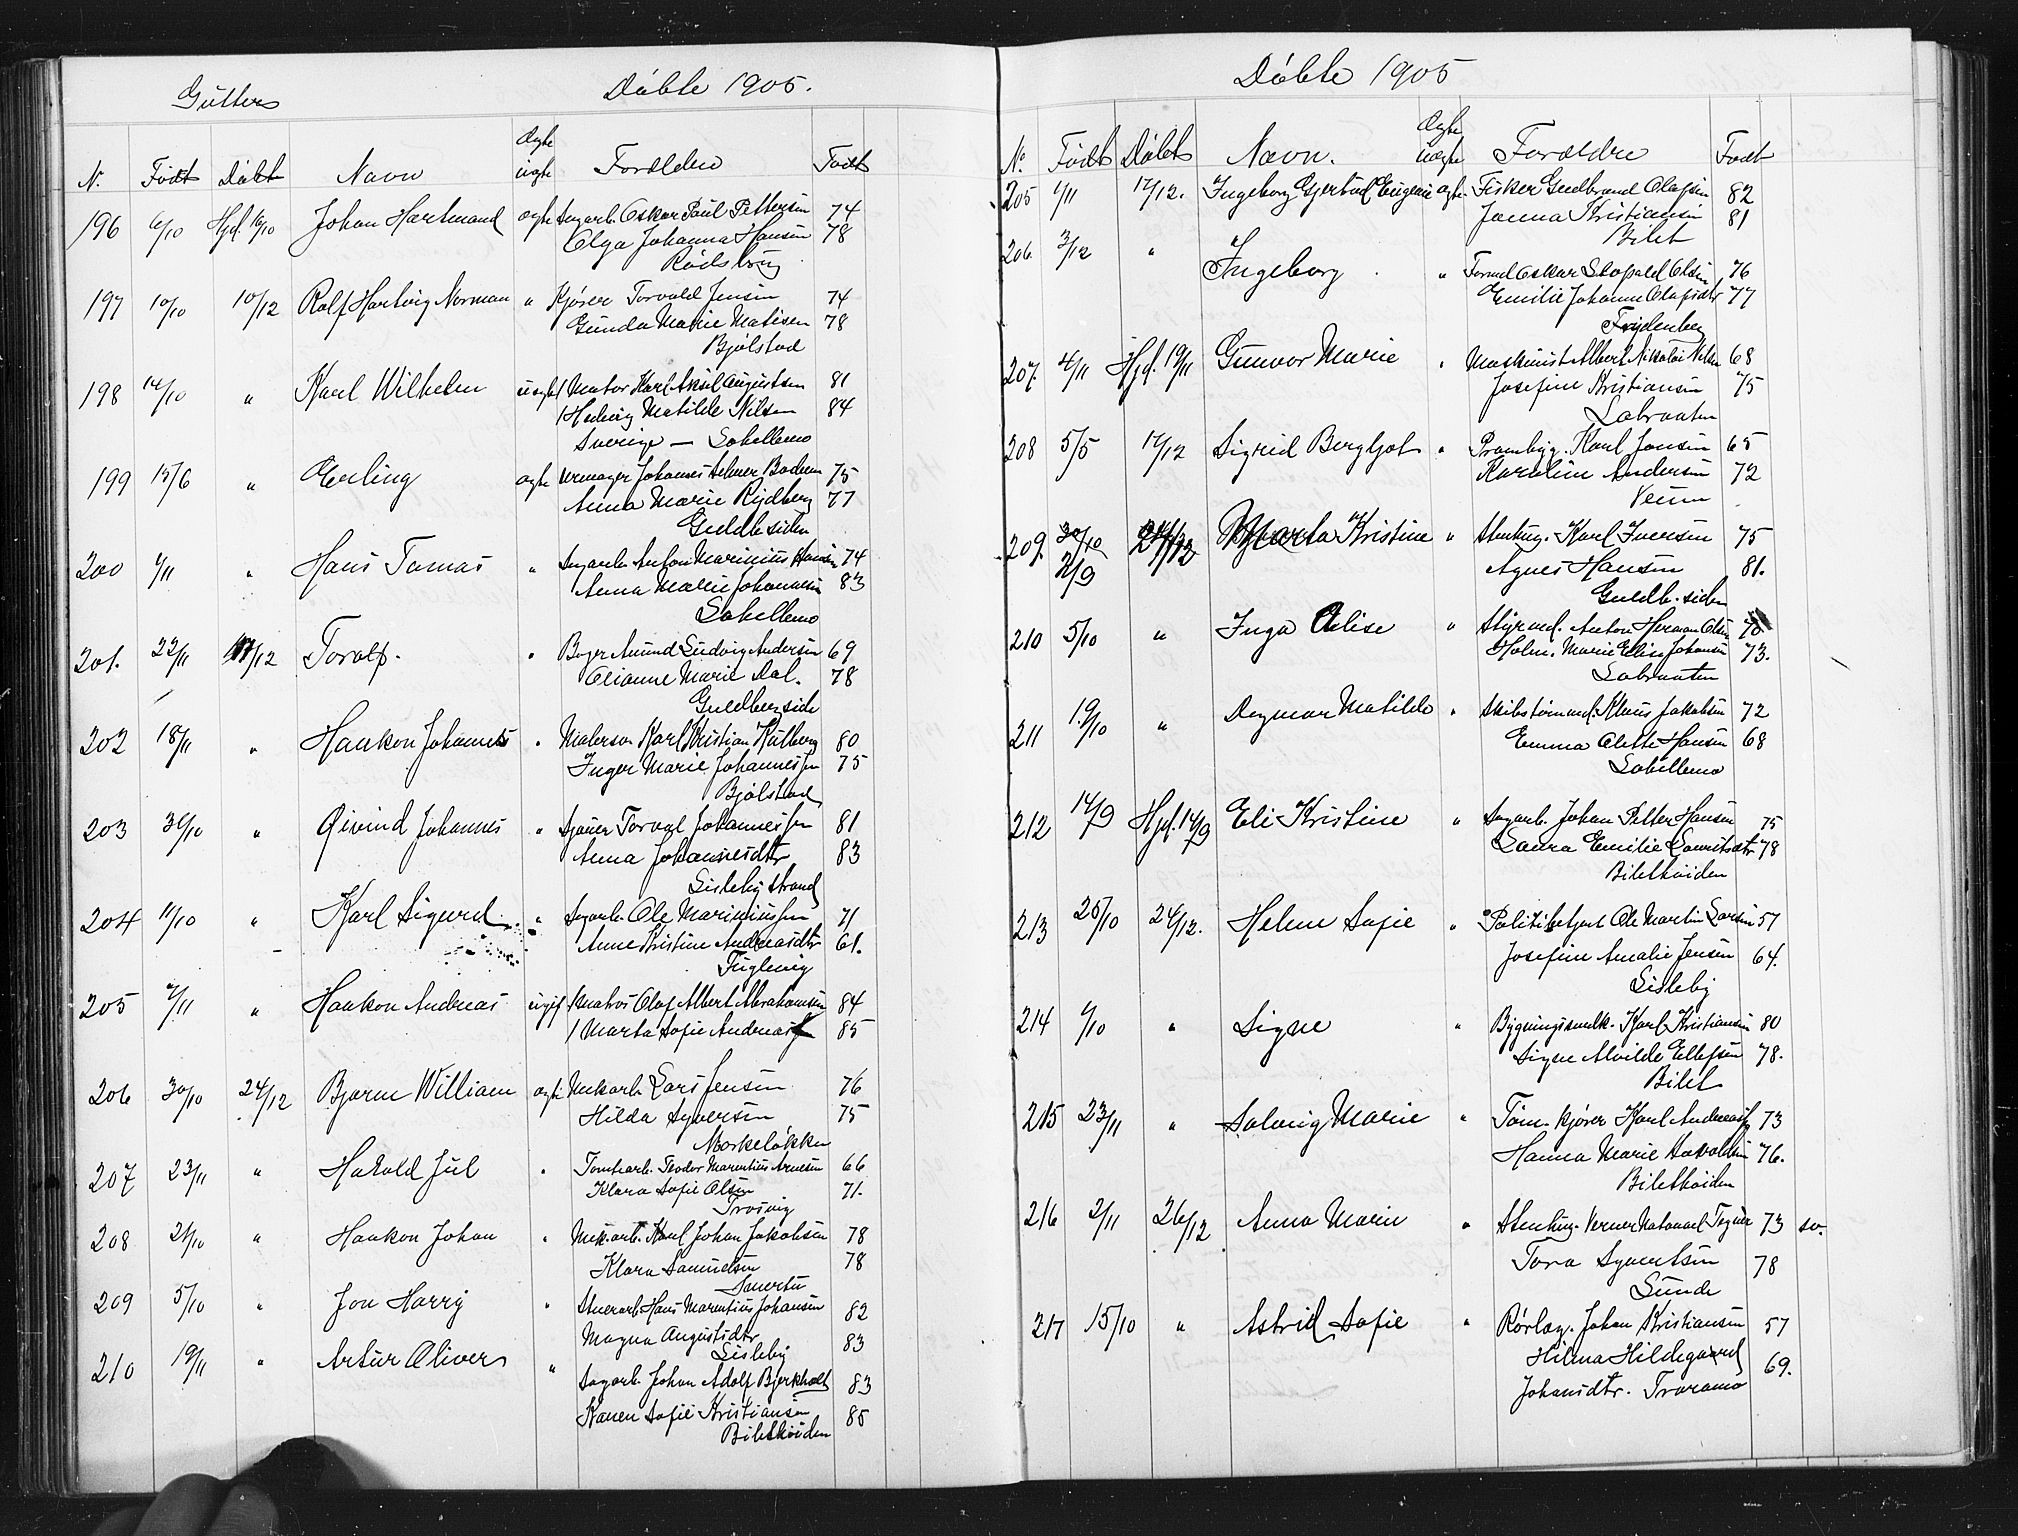 Gutter Døbte 1905.
N. Født Døbt Navn Ægte uægte Forældre Født
196 6/10 Hjd. 16/10 Johan Hartmand ægte Sagarb. Oskar Paul Pettersen 74
Olga Johanna Hansen 78
Rødsberg
197 10/10 10/12 Rolf Hartvig Norman " Kjører Torvald Jensen 74
Gunda Marie Matisen 78
Bjølstad
198 14/10 " Karl Wilhelm uægte Karl Aksel Augustsen 81
Hedvig Matilde Nilsen 84
Sverige — Labellemo
199 15/6 " Erling ægte Urmager Johannes 75
Anna Marie Rydberg 77
Guldb.siden
200 1/11 " Hans Tomas " Sagarb. Anton Marinius Hansen 74
Anna Marie Johannesen 83
Labellemo
201. 22/11 17/12 Toralf. " Bager Amund Ludvig Andersen 69
Olianne Marie Dal. 78
Guldbergside
202 18/11 " Haakon Johannes " Karl Kristian Hulberg 80
Inger Marie Johannessen 75
Bjølstad
203 30/10 " Øivind Johannes " Torval Johannessen 81
Anna Johannesdtr 83
Lisleby strand
204 11/10 " Karl Sigurd " Sagarb. Ole Mariniussen 71
Anne Kristine Andreasdtr 61.
Fuglevig
205 7/11 " Haakon Andreas Matros Olaf Albert Abrahamsen 84
Marta Sofie Andreas 85
206 30/10 24/12 Bjarne William ægte Mekarb. Lars Jensen 76
Hilda Syversen 75
Norkeløkken
207 23/11 " Harald Jul " Tomtearb. Teodor Marentius Arnesen 66
Klara Sofie Olsen 71.
Trosvig
208 21/10 " Haakon Johan " Mek.arb. Karl Johan Jakobsen 78
Klara Samuelsen 78
Smertu
209 5/10 " Jon Harry " Stenarb. Hans Marentius Johansen 82
Magna Augustdtr 83
Lisleby
210 19/11 " Artur Oliver " Sagarb. Johan Adolf Bjerkholt 83
Karen Sofie Kristiansen 85
Biletkøiden
Døbte 1905
No Født Døbt Navn. Ægte uægte Forældre Født
205 1/11 17/12. Ingeborg Gjertrud Eugenie ægte Fisker Gudbrand Olafsen 82
Janna Kristiansen 81
Bilet
206 3/12 " Ingeborg " Formd Oskar Leopold Olsen 76
Emilie Johanne Olafsdtr 77
Frydenberg
207. 4/11 Hjd. 19/11 Gunvor Marie " Maskinist Albert Nikolai Nilsen 68
Josefine Kristiansen 75
Labraaten
208 5/5 17/12 Sigrid Bergljot " Prambyg. Karl Jensen 65
Karoline Andersen 72
Veum
209. 30/10 2/9 24/12 Marta Kristine " Stenhug. Karl Iversen 75
Agnes Hansen 81.
Guldb. siden
210 5/10 " Inga Elise " Styrmd. Anton Herman Olsen 70
Holm. Marie Elise Johansen 73.
Labraaten
211 19/10 " Dagmar Matilde " Skibstømmd. Klaus Jakobsen 72
Emma Olette Hansen 68
Labellemo
212 14/9 Hjd. 14/9 Eli Kristine " Sagarb. Johan Petter Hansen 75
Laura Emilie Lauritsdtr 78
Biletkøiden
213 25/10 24/12. Helene Sofie " Politibetjent Ole Martin Larsen 57
Josefine Amalie Jensen 64.
Lisleby
214 1/10 " Signe " Bygningssmelk. Karl Kristiansen 80
Signe Alvilde Ellefsen 78.
Bilet
215 23/11 " Solveig Marie " Tøm. kjører Karl Andreassen 73
Hanna Marie Haraldsen 76.
Biletkøiden
216 2/11 26/12 Anna Marie " Stenhug. Verner Natanael Tegner 73 sv.
Tora Syvertsen 78
Sunde
217 15/10 " Astrid Sofie " Rørlæg. Johan Kristiansen 57
Hilma Hildegaard 69.
Johansdtr. Traramo